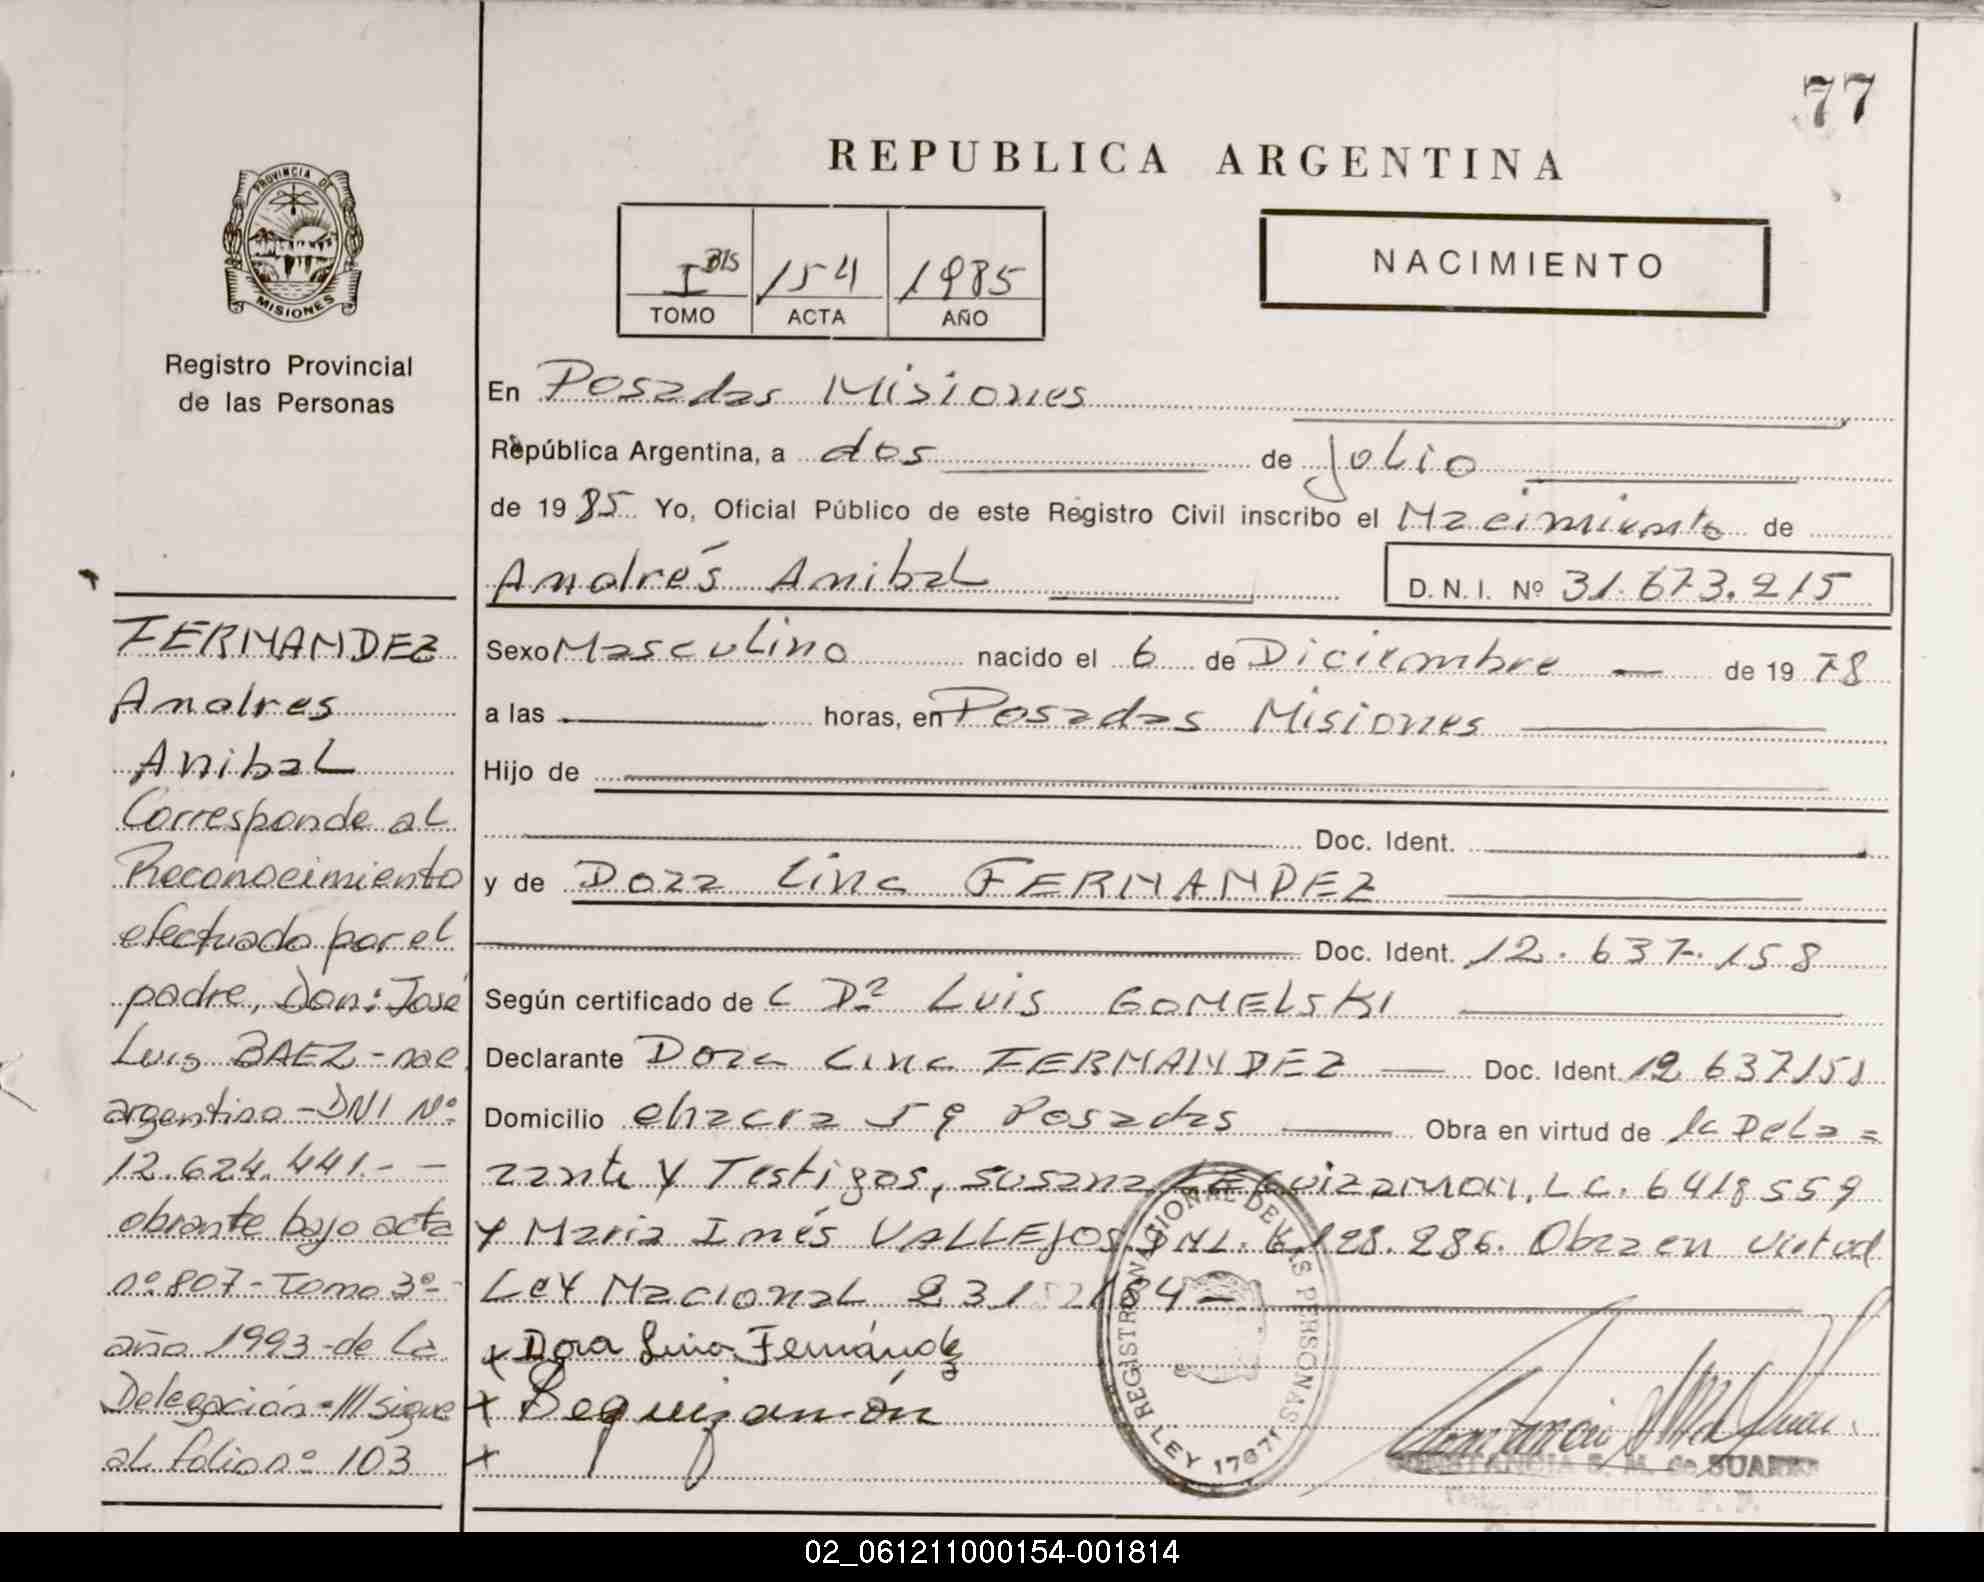 77
REPUBLICA ARGENTINA
PROVINCIA DE
MISIONES
Registro Provincial
de las Personas
I BIS 154 1985
TOMO ACTA AÑO
NACIMIENTO
En Posadas Misiones
República Argentina, a dos de Julio
de 1985 Yo, Oficial Público de este Registro Civil inscribo el Nacimiento de
Andrés Anibal D.N.I. Nº 31.673.215
Sexo Masculino nacido el 6 de Diciembre de 1978
a las horas, en Posadas Misiones
Hijo de
Doc. Ident.
y de Dora Lina FERNANDEZ
Doc. Ident. 12.637.158
Según certificado de Luis GOMELSKI
Declarante Dora Lina FERNANDEZ Doc. Ident. 12 637158
Domicilio chacra 59 Posadas Obra en virtud de la Decla=
rante y Testigos, Susana LEGUIZAMON, LC. 6418559
y Maria Inés VALLEJOS DNI. 6.128.286. Obra en virtud
Ley Nacional 23
x Dora Lina Fernández
x Leguizamón
x
FERNANDEZ
Andres
Anibal
Corresponde al
Reconocimiento
efectuado por el
padre, Don: José
Luis BAEZ - nac.
argentino - DNI Nº
12.624.441.- -
obrante bajo acta
nº 807 - Tomo 3º -
año 1993 - de la
Delegación - /// sigue
al folio nº 103
REGISTRO NACIONAL DE LAS PERSONAS
LEY 17671
CONSTANCIA S. M. de SUAREZ
02_061211000154-001814